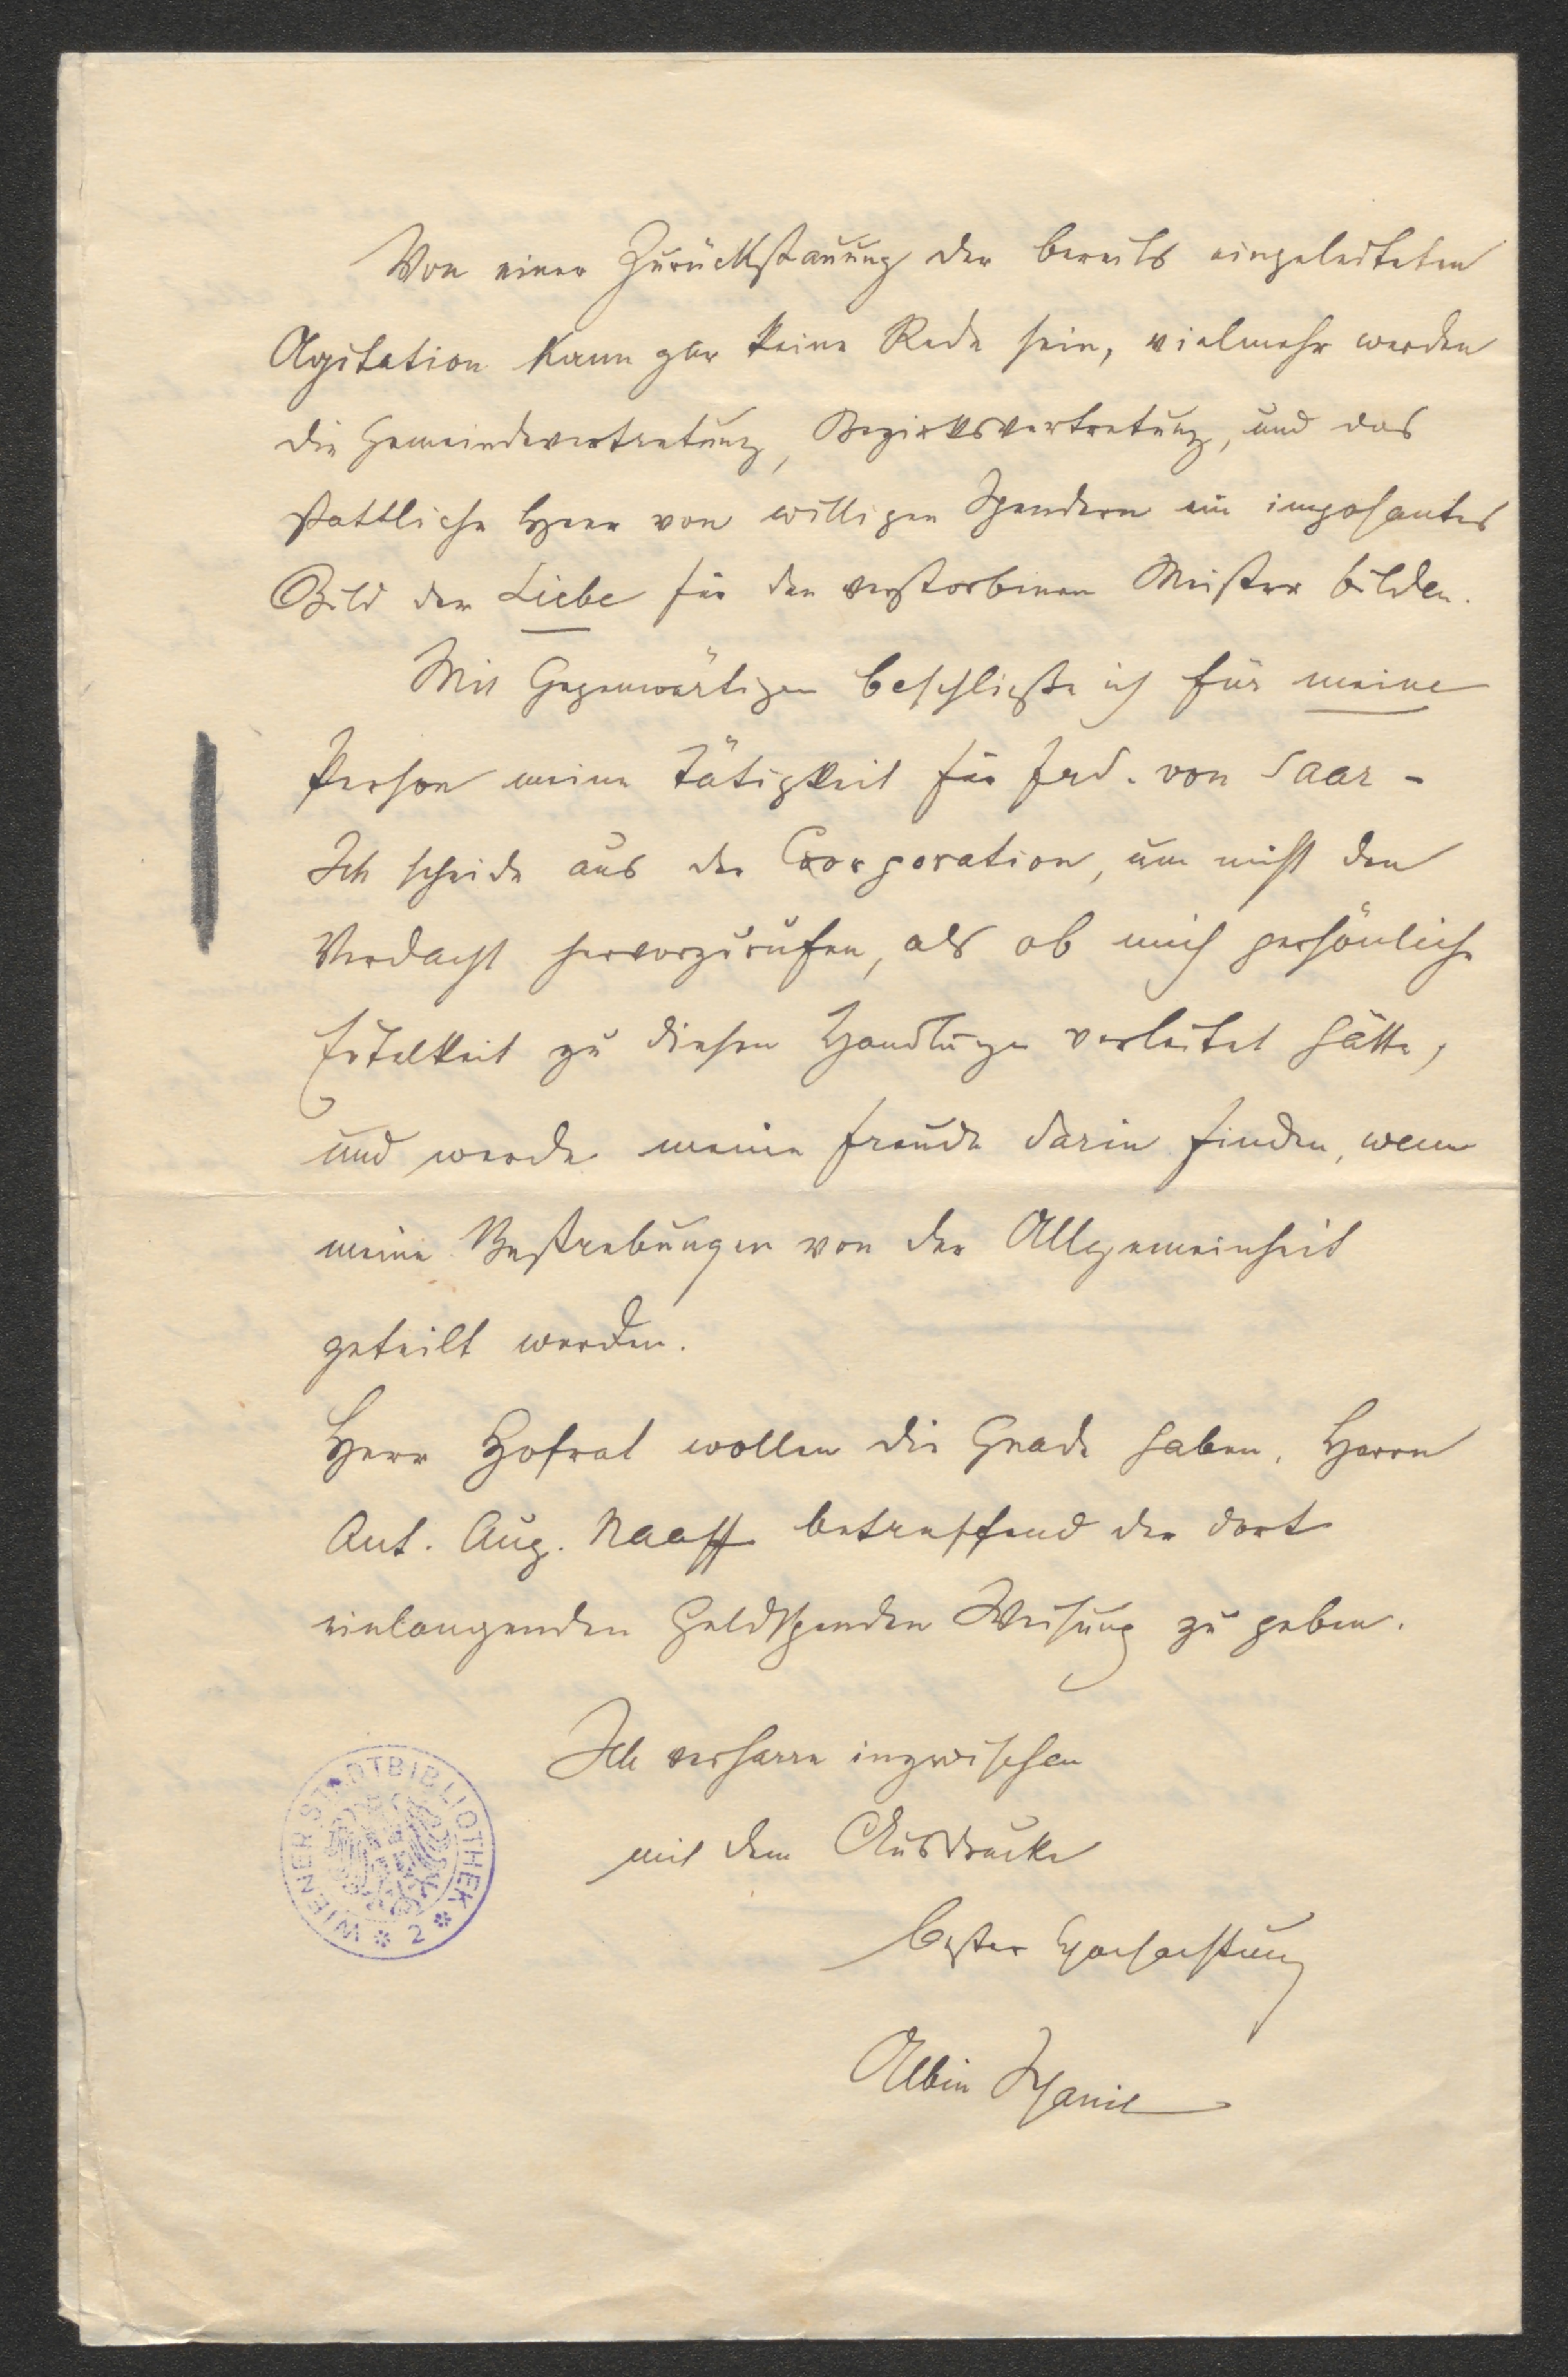 Von einer Zurückstauung der bereits eingeleiteten
Agitation kann gar keine Rede sein, vielmehr werden
die Gemeindevertretung, Bezirksvertretung, und das
stattliche Heer von willigen Spendern ein imposantes
Bild der Liebe für den verstorbenen Meister bilden.
Mit Gegenwärtigen beschließe ich für meine
Person meine Tätigkeit für Ferd. von Saar -
Ich scheide aus der Coorporation, um nicht den
Verdacht hervorzurufen, als ob mich persönliche
Eitelkeit zu diesen Handlungen verleitet hätte,
und werde meine Freude darin finden, wenn
meine Bestrebungen von der Allgemeinheit
geteilt werden.
Herr Hofrat wollen die Gnade haben, Herrn
Ant. Aug. Naaff betreffend der dort
einlangenden Geldspenden Weisung zu geben.
Ich verharre inzwischen
mit dem Ausdrucke
bester Hochachtung
Albin
WIENER STADTBIBLIOTHEK * 2 *